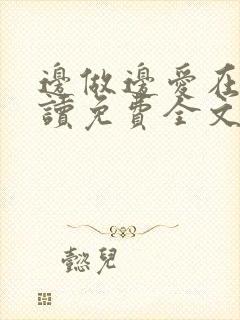 邊做邊愛在
讀免費全文
懿兒